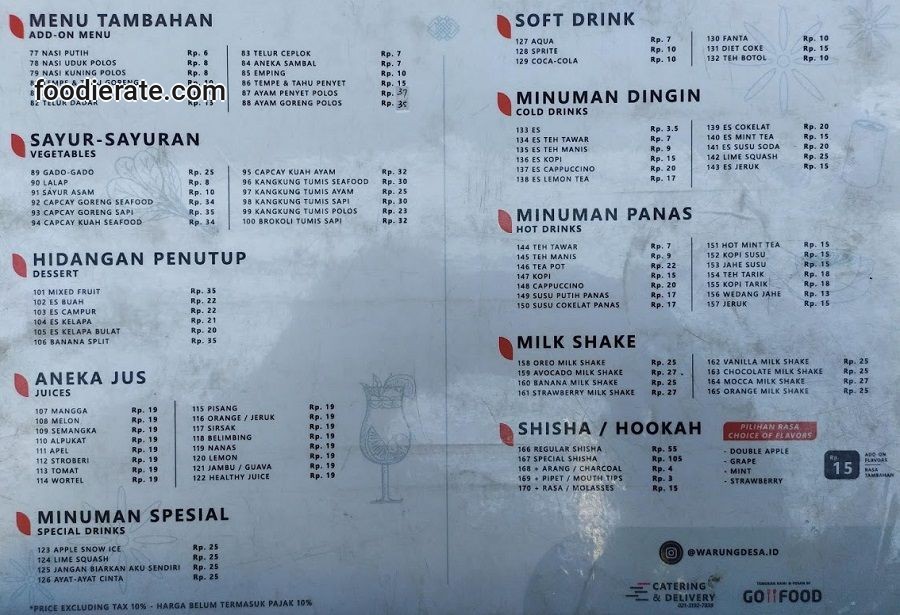 MENU TAMBAHAN
ADD-ON MENU
77 NASI PUTIH Rp. 6
78 NASI UDUK POLOS Rp. 8
79 NASI KUNING POLOS Rp. 8
foodierate.com
82 TELUR DADAR
83 TELUR CEPLOK Rp. 7
84 ANEKA SAMBAL Rp. 7
85 EMPING Rp. 10
86 TEMPE & TAHU PENYET Rp. 15
87 AYAM PENYET POLOS Rp. 37
88 AYAM GORENG POLOS Rp. 35
SAYUR-SAYURAN
VEGETABLES
89 GADO-GADO Rp. 25
90 LALAP Rp. 8
91 SAYUR ASAM Rp. 10
92 CAPCAY GORENG SEAFOOD Rp. 34
93 CAPCAY GORENG SAPI Rp. 35
94 CAPCAY KUAH SEAFOOD Rp. 34
95 CAPCAY KUAH AYAM Rp. 32
96 KANGKUNG TUMIS SEAFOOD Rp. 30
97 KANGKUNG TUMIS AYAM Rp. 25
98 KANGKUNG TUMIS SAPI Rp. 30
99 KANGKUNG TUMIS POLOS Rp. 23
100 BROKOLI TUMIS SAPI Rp. 32
HIDANGAN PENUTUP
DESSERT
101 MIXED FRUIT Rp. 35
102 ES BUAH Rp. 22
103 ES CAMPUR Rp. 22
104 ES KELAPA Rp. 21
105 ES KELAPA BULAT Rp. 20
106 BANANA SPLIT Rp. 35
ANEKA JUS
JUICES
107 MANGGA Rp. 19
108 MELON Rp. 19
109 SEMANGKA Rp. 19
110 ALPUKAT Rp. 19
111 APEL Rp. 19
112 STROBERI Rp. 19
113 TOMAT Rp. 19
114 WORTEL Rp. 19
115 PISANG Rp. 19
116 ORANGE / JERUK Rp. 19
117 SIRSAK Rp. 19
118 BELIMBING Rp. 19
119 NANAS Rp. 19
120 LEMON Rp. 19
121 JAMBU / GUAVA Rp. 19
122 HEALTHY JUICE Rp. 19
MINUMAN SPESIAL
SPECIAL DRINKS
123 APPLE SNOW ICE Rp. 25
124 LIME SQUASH Rp. 25
125 JANGAN BIARKAN AKU SENDIRI Rp. 25
126 AYAT-AYAT CINTA Rp. 25
*PRICE EXCLUDING TAX 10% - HARGA BELUM TERMASUK PAJAK 10%
SOFT DRINK
127 AQUA Rp. 7
128 SPRITE Rp. 10
129 COCA-COLA Rp. 10
130 FANTA Rp. 10
131 DIET COKE Rp. 15
132 TEH BOTOL Rp. 10
MINUMAN DINGIN
COLD DRINKS
133 ES Rp. 3.5
134 ES TEH TAWAR Rp. 7
135 ES TEH MANIS Rp. 9
136 ES KOPI Rp. 15
137 ES CAPPUCCINO Rp. 20
138 ES LEMON TEA Rp. 17
139 ES COKELAT Rp. 20
140 ES MINT TEA Rp. 15
141 ES SUSU SODA Rp. 20
142 LIME SQUASH Rp. 25
143 ES JERUK Rp. 15
MINUMAN PANAS
HOT DRINKS
144 TEH TAWAR Rp. 7
145 TEH MANIS Rp. 9
146 TEA POT Rp. 22
147 KOPI Rp. 15
148 CAPPUCCINO Rp. 20
149 SUSU PUTIH PANAS Rp. 17
150 SUSU COKELAT PANAS Rp. 17
151 HOT MINT TEA Rp. 15
152 KOPI SUSU Rp. 15
153 JAHE SUSU Rp. 15
154 TEH TARIK Rp. 18
155 KOPI TARIK Rp. 18
156 WEDANG JAHE Rp. 13
157 JERUK Rp. 15
MILK SHAKE
158 OREO MILK SHAKE Rp. 25
159 AVOCADO MILK SHAKE Rp. 27
160 BANANA MILK SHAKE Rp. 25
161 STRAWBERRY MILK SHAKE Rp. 27
162 VANILLA MILK SHAKE Rp. 25
163 CHOCOLATE MILK SHAKE Rp. 25
164 MOCCA MILK SHAKE Rp. 27
165 ORANGE MILK SHAKE Rp. 25
SHISHA / HOOKAH
166 REGULAR SHISHA Rp. 55
167 SPECIAL SHISHA Rp. 105
168 + ARANG / CHARCOAL Rp. 4
169 + PIPET / MOUTH TIPS Rp. 3
170 + RASA / MOLASSES Rp. 15
PILIHAN RASA
CHOICE OF FLAVORS
- DOUBLE APPLE
- GRAPE
- MINT
- STRAWBERRY
Rp. 15
ADD ON
FLAVORS
RASA
TAMBAHAN
@WARUNGDESA.ID
CATERING
& DELIVERY
GOFOOD